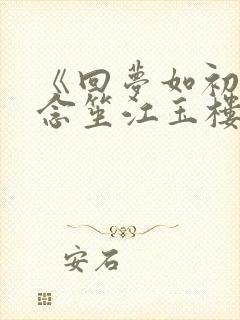 《回夢如初
念笙江玉樓
安石